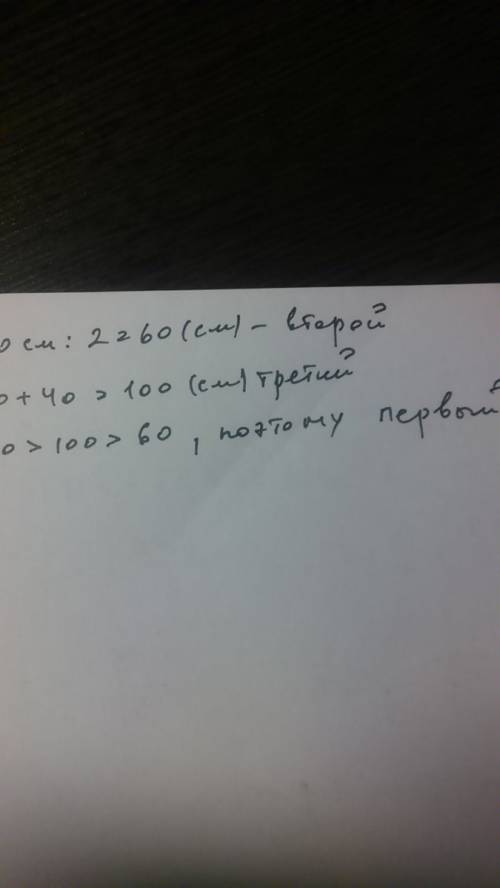 0 см : 2 = 60 (см) – второй
0 + 40 = 100 (см) третий
0 > 100 > 60 , поэтому первый